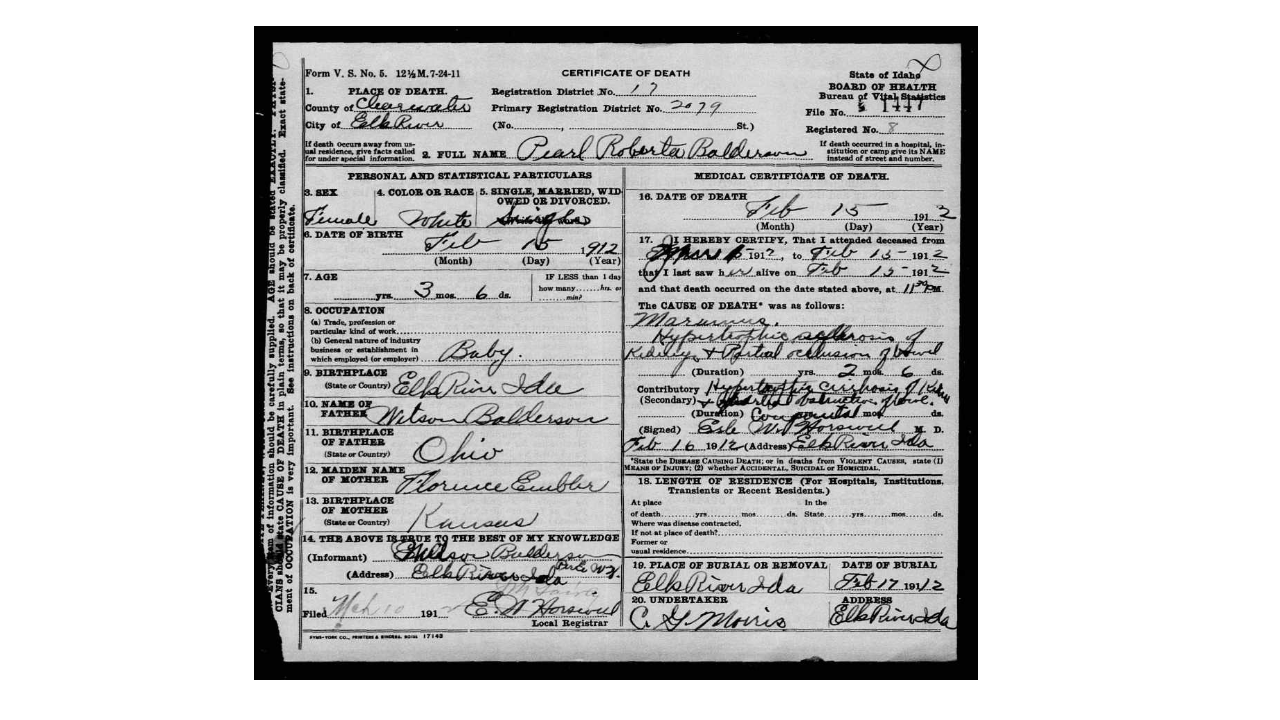 Form V. S. No. 5. 12½M. 7-24-11
CERTIFICATE OF DEATH
State of Idaho
BOARD OF HEALTH
Bureau of Vital Statistics
File No. 1447
Registered No. 8
1. PLACE OF DEATH.
County of Clearwater
City of Elk River
Registration District No. 17
Primary Registration District No. 2079
(No. , St.)
If death occurs away from us-
ual residence, give facts called
for under special information.
2. FULL NAME Pearl Roberta Balderson
If death occurred in a hospital, in-
stitution or camp give its NAME
instead of street and number.
PERSONAL AND STATISTICAL PARTICULARS
3. SEX
Female
4. COLOR OR RACE
White
5. SINGLE, MARRIED, WID-
OWED OR DIVORCED.
Single
6. DATE OF BIRTH
Feb 15 1912
(Month) (Day) (Year)
7. AGE
yrs. 3 mos. 6 ds.
IF LESS than 1 day
how many hrs. or
min?
8. OCCUPATION
(a) Trade, profession or
particular kind of work
(b) General nature of industry
business or establishment in
which employed (or employer) Baby.
9. BIRTHPLACE
(State or Country) Elk River Ida
10. NAME OF
FATHER Wilson Balderson
11. BIRTHPLACE
OF FATHER
(State or Country) Ohio
12. MAIDEN NAME
OF MOTHER Florence Embler
13. BIRTHPLACE
OF MOTHER
(State or Country) Kansas
14. THE ABOVE IS TRUE TO THE BEST OF MY KNOWLEDGE
(Informant) Wilson Balderson
(Address) Elk River Ida
15.
Filed Mch 10 191
E. W. Horswill
Local Registrar
SYMS-YORK CO., PRINTERS & BINDERS, BOISE 17143
MEDICAL CERTIFICATE OF DEATH.
16. DATE OF DEATH
Feb 15 1912
(Month) (Day) (Year)
17. I HEREBY CERTIFY, That I attended deceased from
1912, to Feb 15 1912
that I last saw her alive on Feb 15 1912
and that death occurred on the date stated above, at 11 30 P M.
The CAUSE OF DEATH* was as follows:
Marasmus.
Hypertrophic sclerosis of
Kidneys & Partial occlusion of bowel
(Duration) yrs. 2 mos. 6 ds.
Contributory Hypertrophic cirrhosis of
(Secondary) partial obstruction of bowel.
(Duration) Congenital mos. ds.
(Signed) Horswill M. D.
Feb 16 1912 (Address) Elk River Ida
*State the DISEASE CAUSING DEATH; or in deaths from VIOLENT CAUSES, state (1)
MEANS OF INJURY; (2) whether ACCIDENTAL, SUICIDAL OR HOMICIDAL.
18. LENGTH OF RESIDENCE (For Hospitals, Institutions,
Transients or Recent Residents.)
At place In the
of death yrs. mos. ds. State yrs. mos. ds.
Where was disease contracted,
If not at place of death?
Former or
usual residence
19. PLACE OF BURIAL OR REMOVAL
Elk River Ida
DATE OF BURIAL
Feb 17 1912
20. UNDERTAKER
C. G. Morris
ADDRESS
Elk River Ida
item of information should be carefully supplied. AGE should be stated EXACTLY.
CIANS should state CAUSE OF DEATH in plain terms, so that it may be properly classified. Exact state-
ment of OCCUPATION is very important. See instructions on back of certificate.